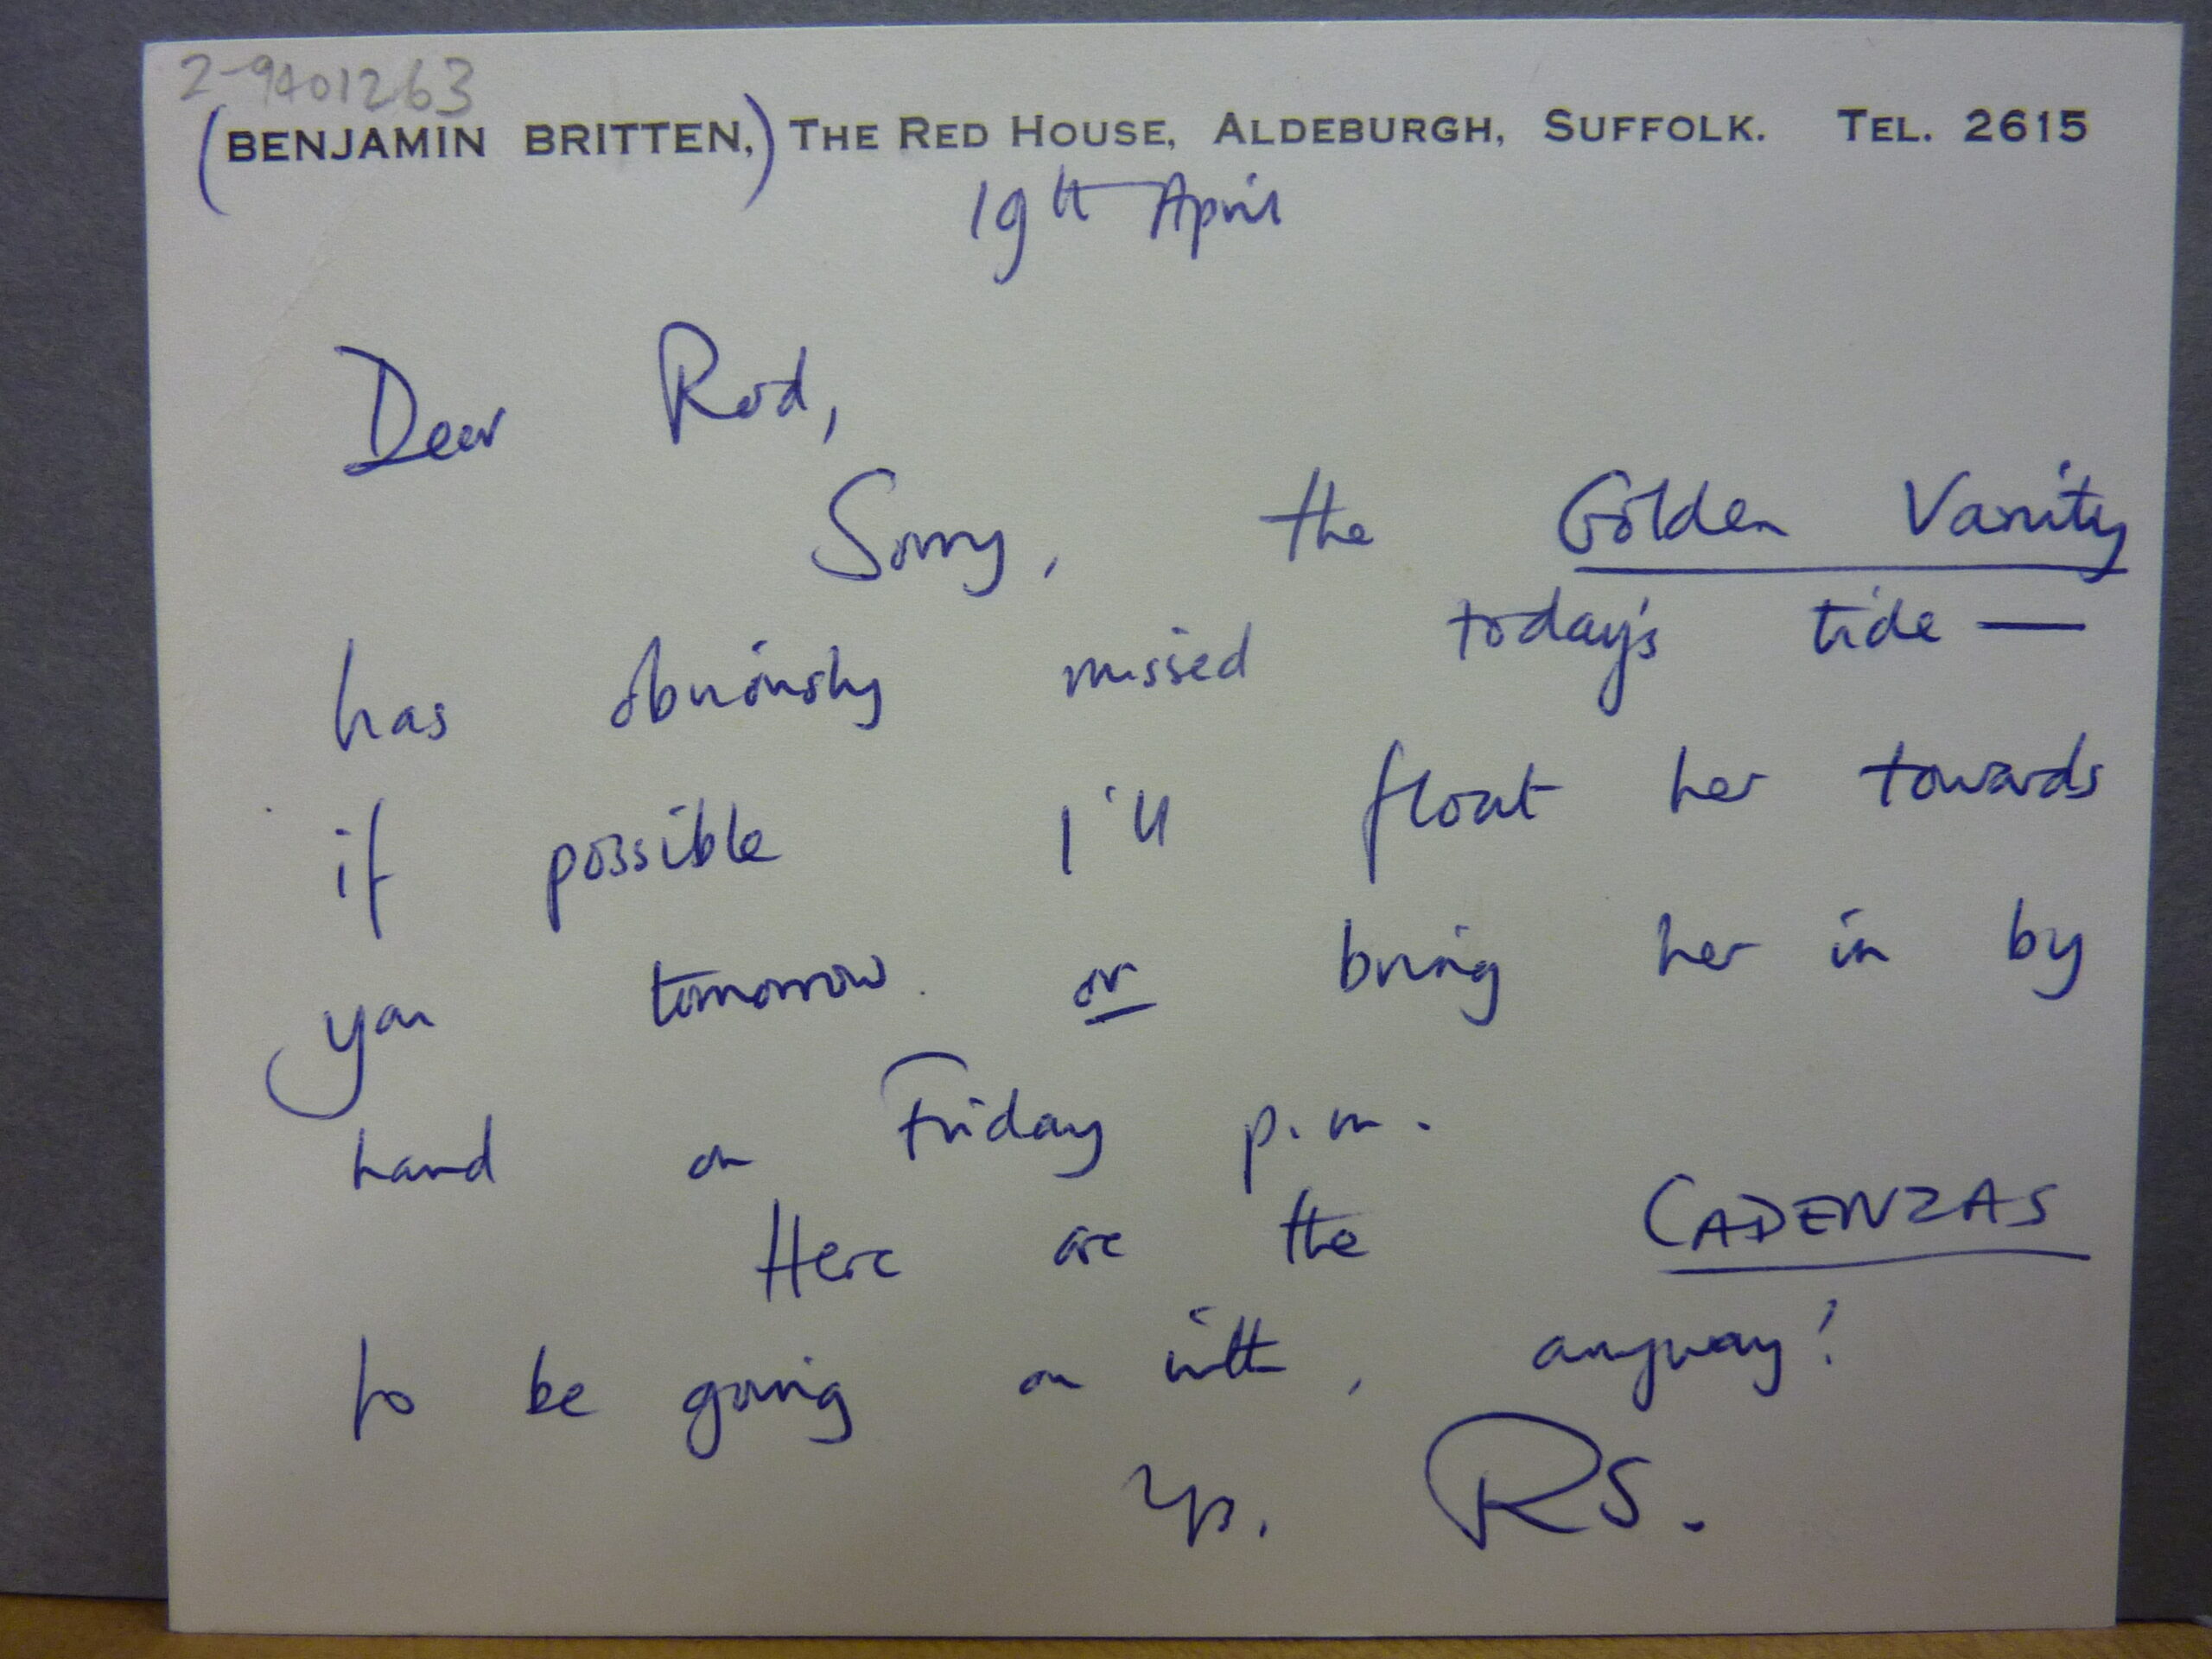 2-9401263
(BENJAMIN BRITTEN,) THE RED HOUSE, ALDEBURGH, SUFFOLK. TEL. 2615
19th April
Dear Rod,
Sorry, the Golden Vanity
has obviously missed today's tide —
if possible I'll float her towards
you tomorrow or bring her in by
hand on Friday p.m.
Here are the CADENZAS
to be going on with, anyway!
Yrs. RS.